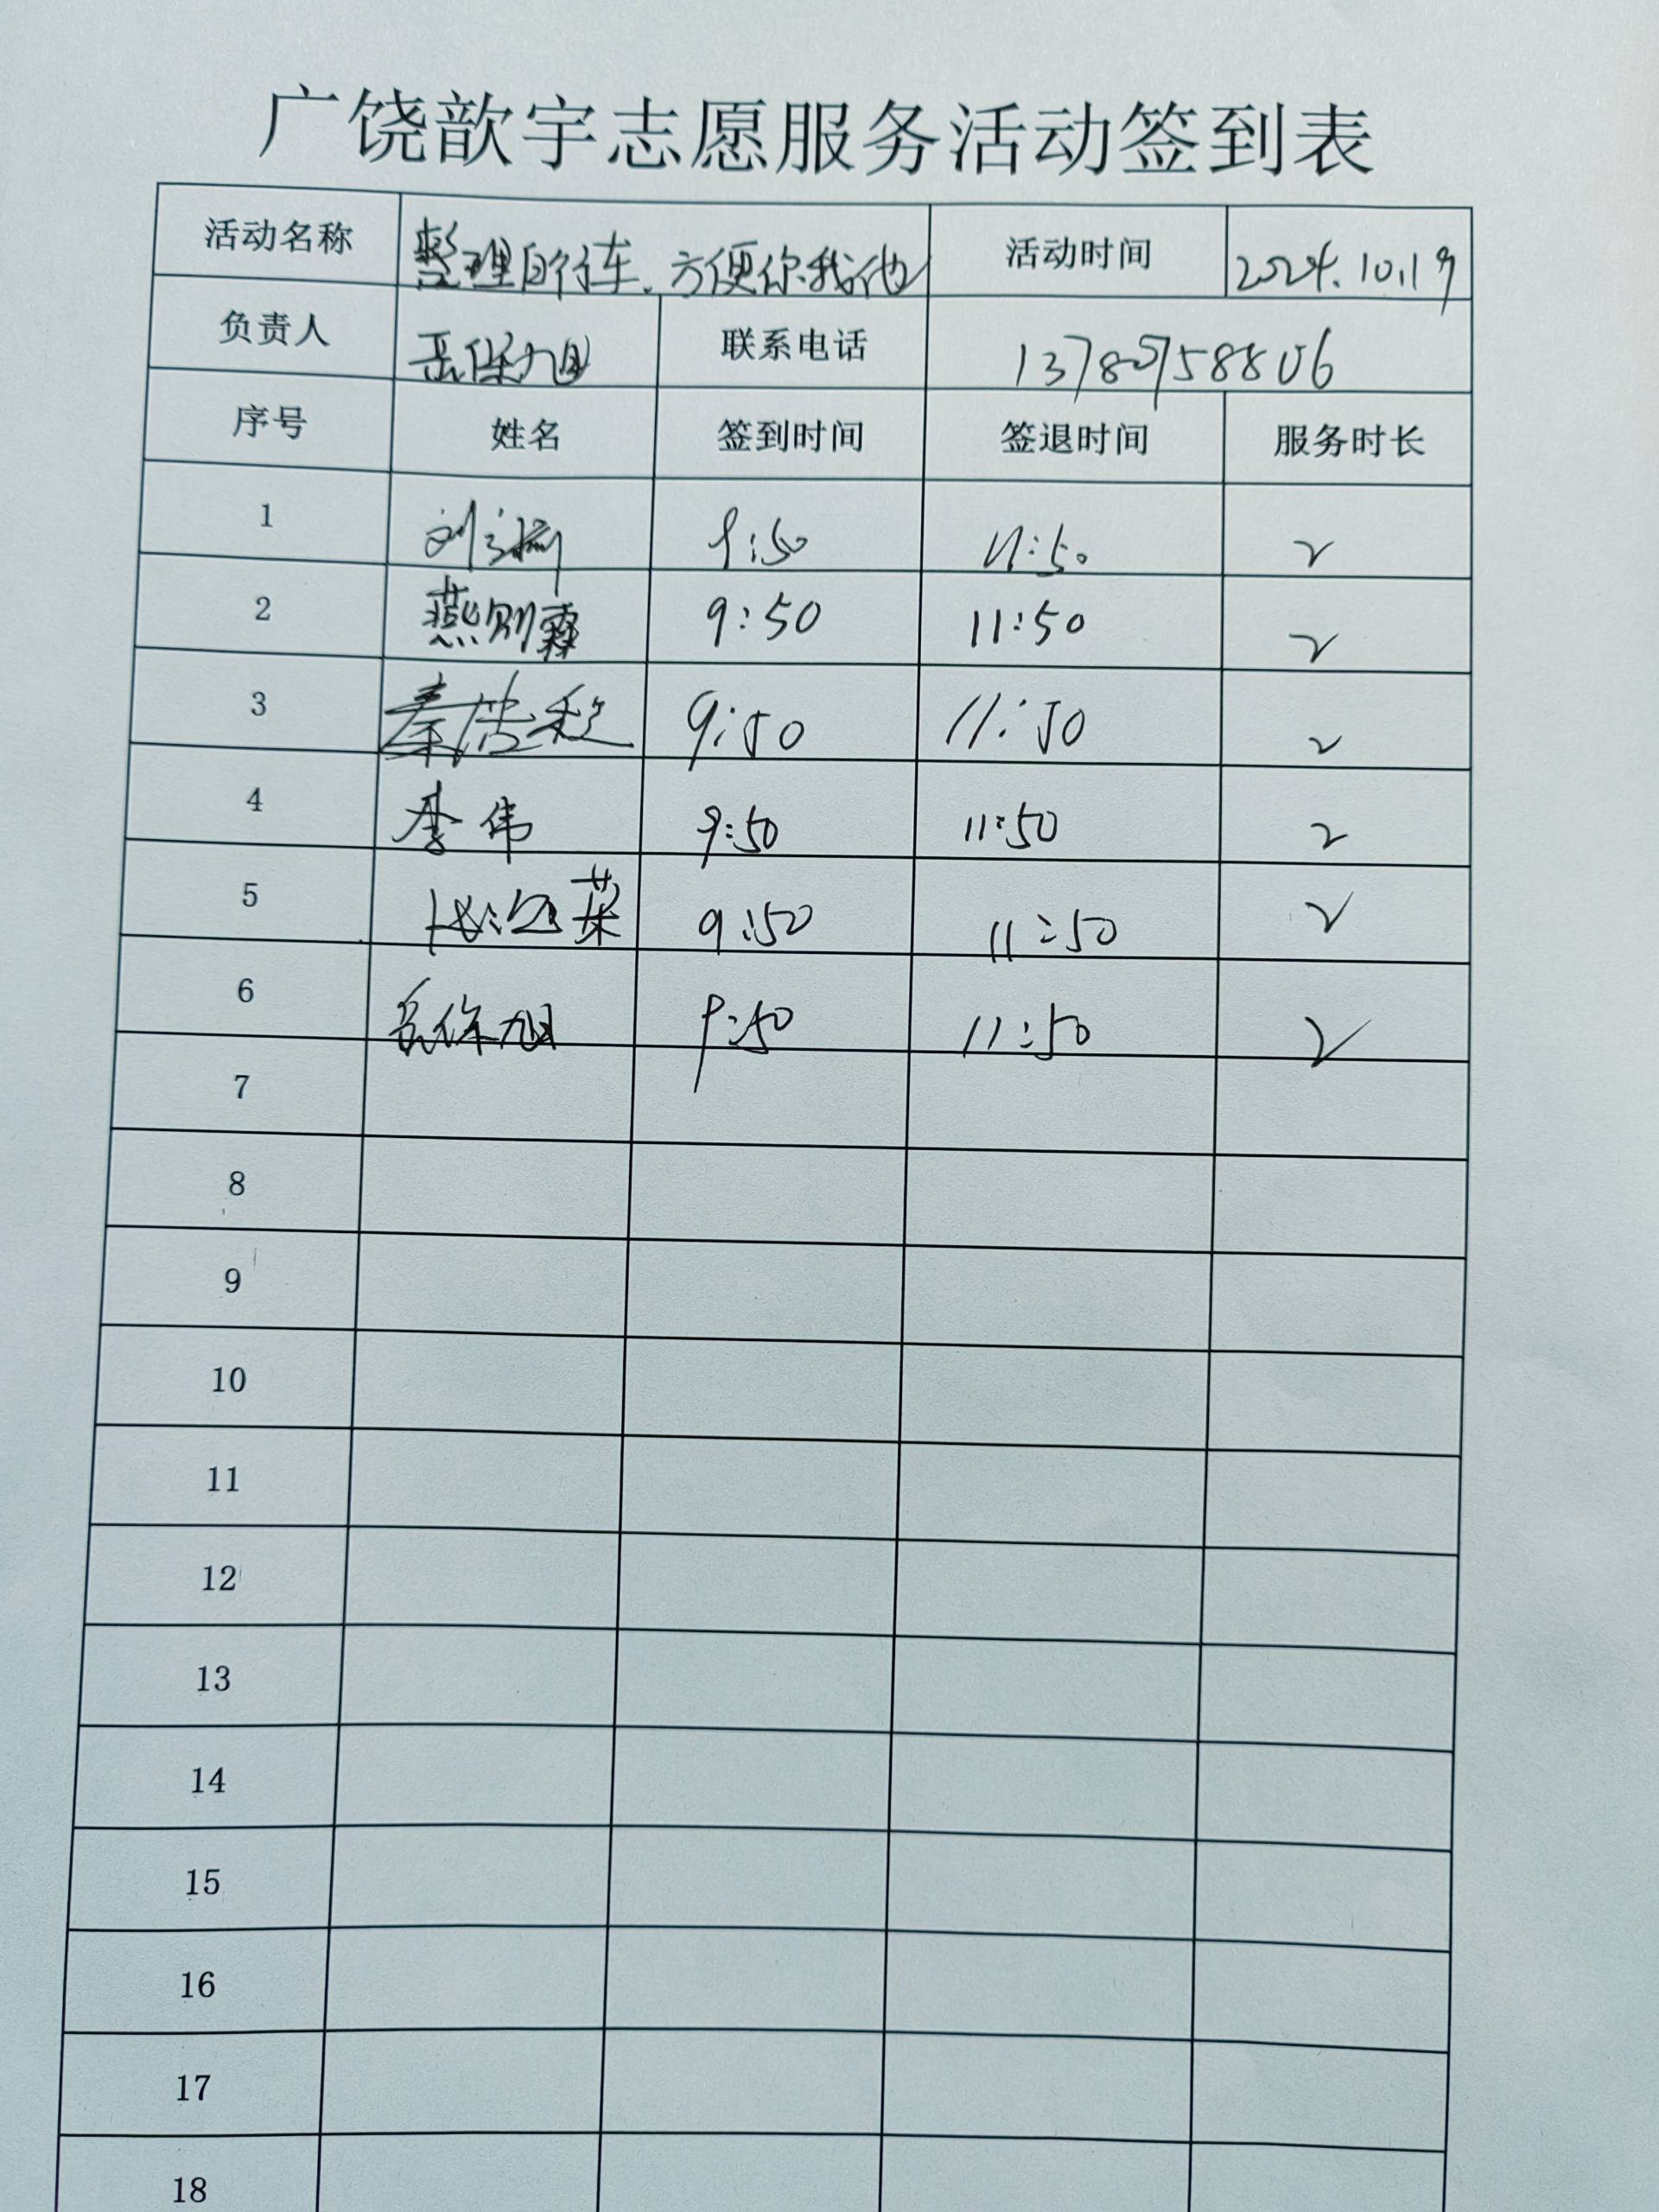 广饶歆宇志愿服务活动签到表
活动名称 整理自行车、方便你我他 活动时间 2024.10.19
负责人 岳保旭 联系电话 13780758806
序号 姓名 签到时间 签退时间 服务时长
1 刘 9:50 11:50 2
2 燕别霖 9:50 11:50 2
3 秦 9:50 11:50 2
4 李伟 9:50 11:50 2
5 9:50 11:50 2
6 岳保旭 9:50 11:50 2
7
8
9
10
11
12
13
14
15
16
17
18